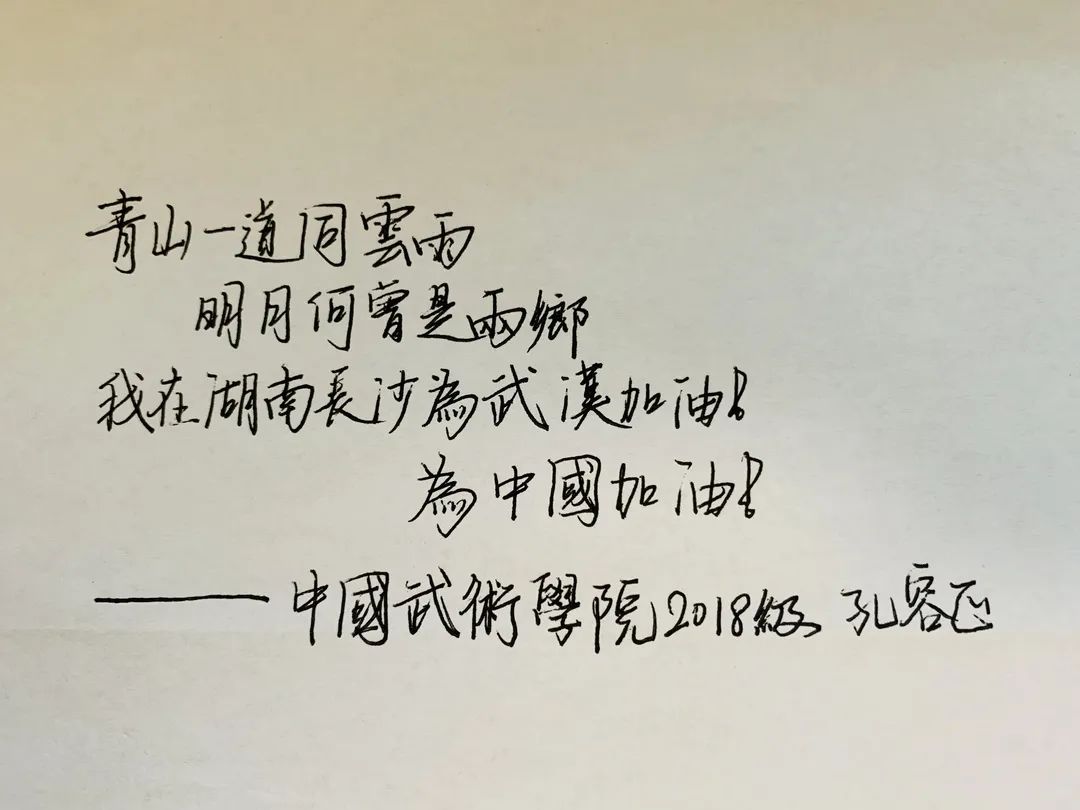 青山一道同雲雨
明月何曾是兩鄉
我在湖南長沙為武漢加油!
為中國加油!
——中國武術學院2018級 孔容正